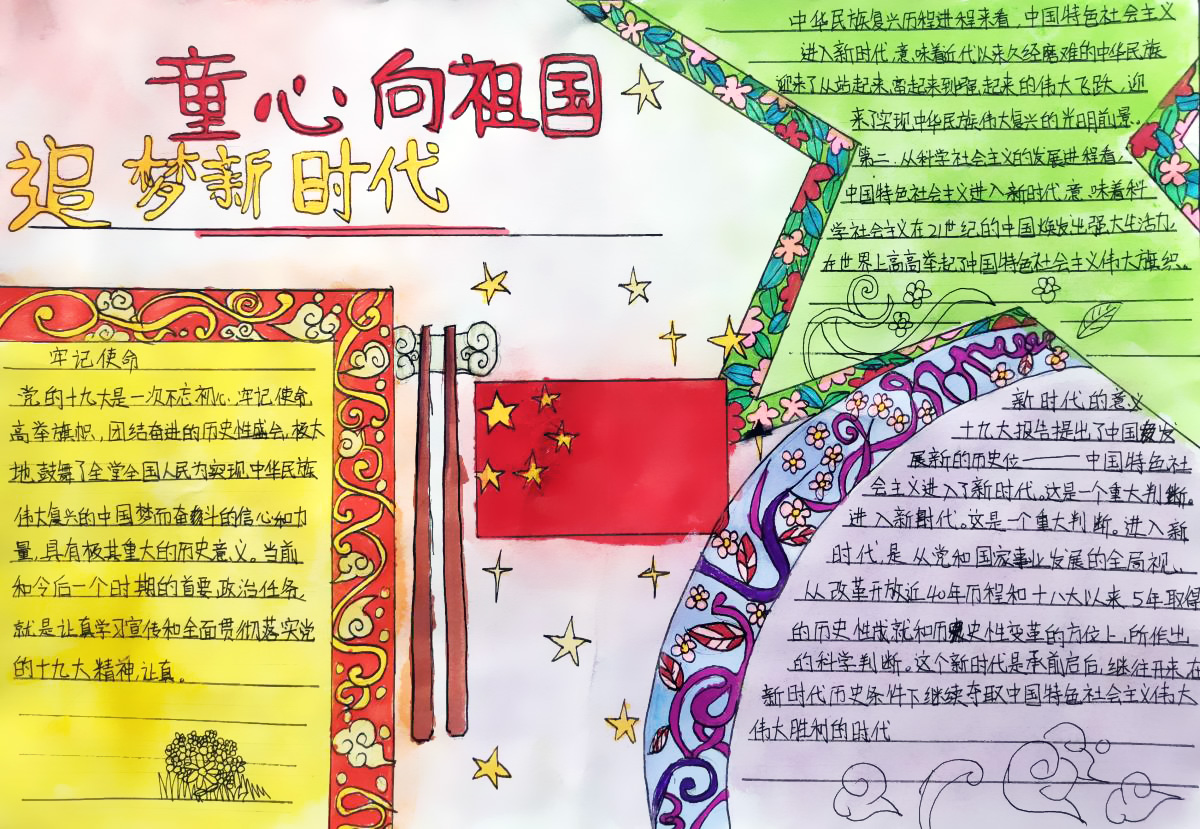 童心向祖国
追梦新时代
牢记使命
党的十九大是一次不忘初心、牢记使命
高举旗帜、团结奋进的历史性盛会,极大
地鼓舞了全党全国人民为实现中华民族
伟大复兴的中国梦而奋斗的信心和力
量,具有极其重大的历史意义。当前
和今后一个时期的首要政治任务,
就是认真学习宣传和全面贯彻落实党
的十九大精神,认真。
中华民族复兴历程进程来看,中国特色社会主义
进入新时代,意味着近代以来久经磨难的中华民族
迎来了从站起来,富起来到强起来的伟大飞跃,迎
来了实现中华民族伟大复兴的光明前景。
第二,从科学社会主义的发展进程看,
中国特色社会主义进入新时代,意味着科
学社会主义在21世纪的中国焕发出强大生活力,
在世界上高高举起了中国特色社会主义伟大旗织。
新时代的意义
十九大报告提出了中国发
展新的历史位——中国特色社
会主义进入了新时代。这是一个重大判断。
进入新时代。这是一个重大判断。进入新
时代是从党和国家事业发展的全局视、
从改革开放近40年历程和十八大以来5年取得
的历史性成就和历史性变革的方位上,所作出
的科学判断。这个新时代是承前启后,继往开来在
新时代历史条件下继续夺取中国特色社会主义伟大
伟大胜利的时代